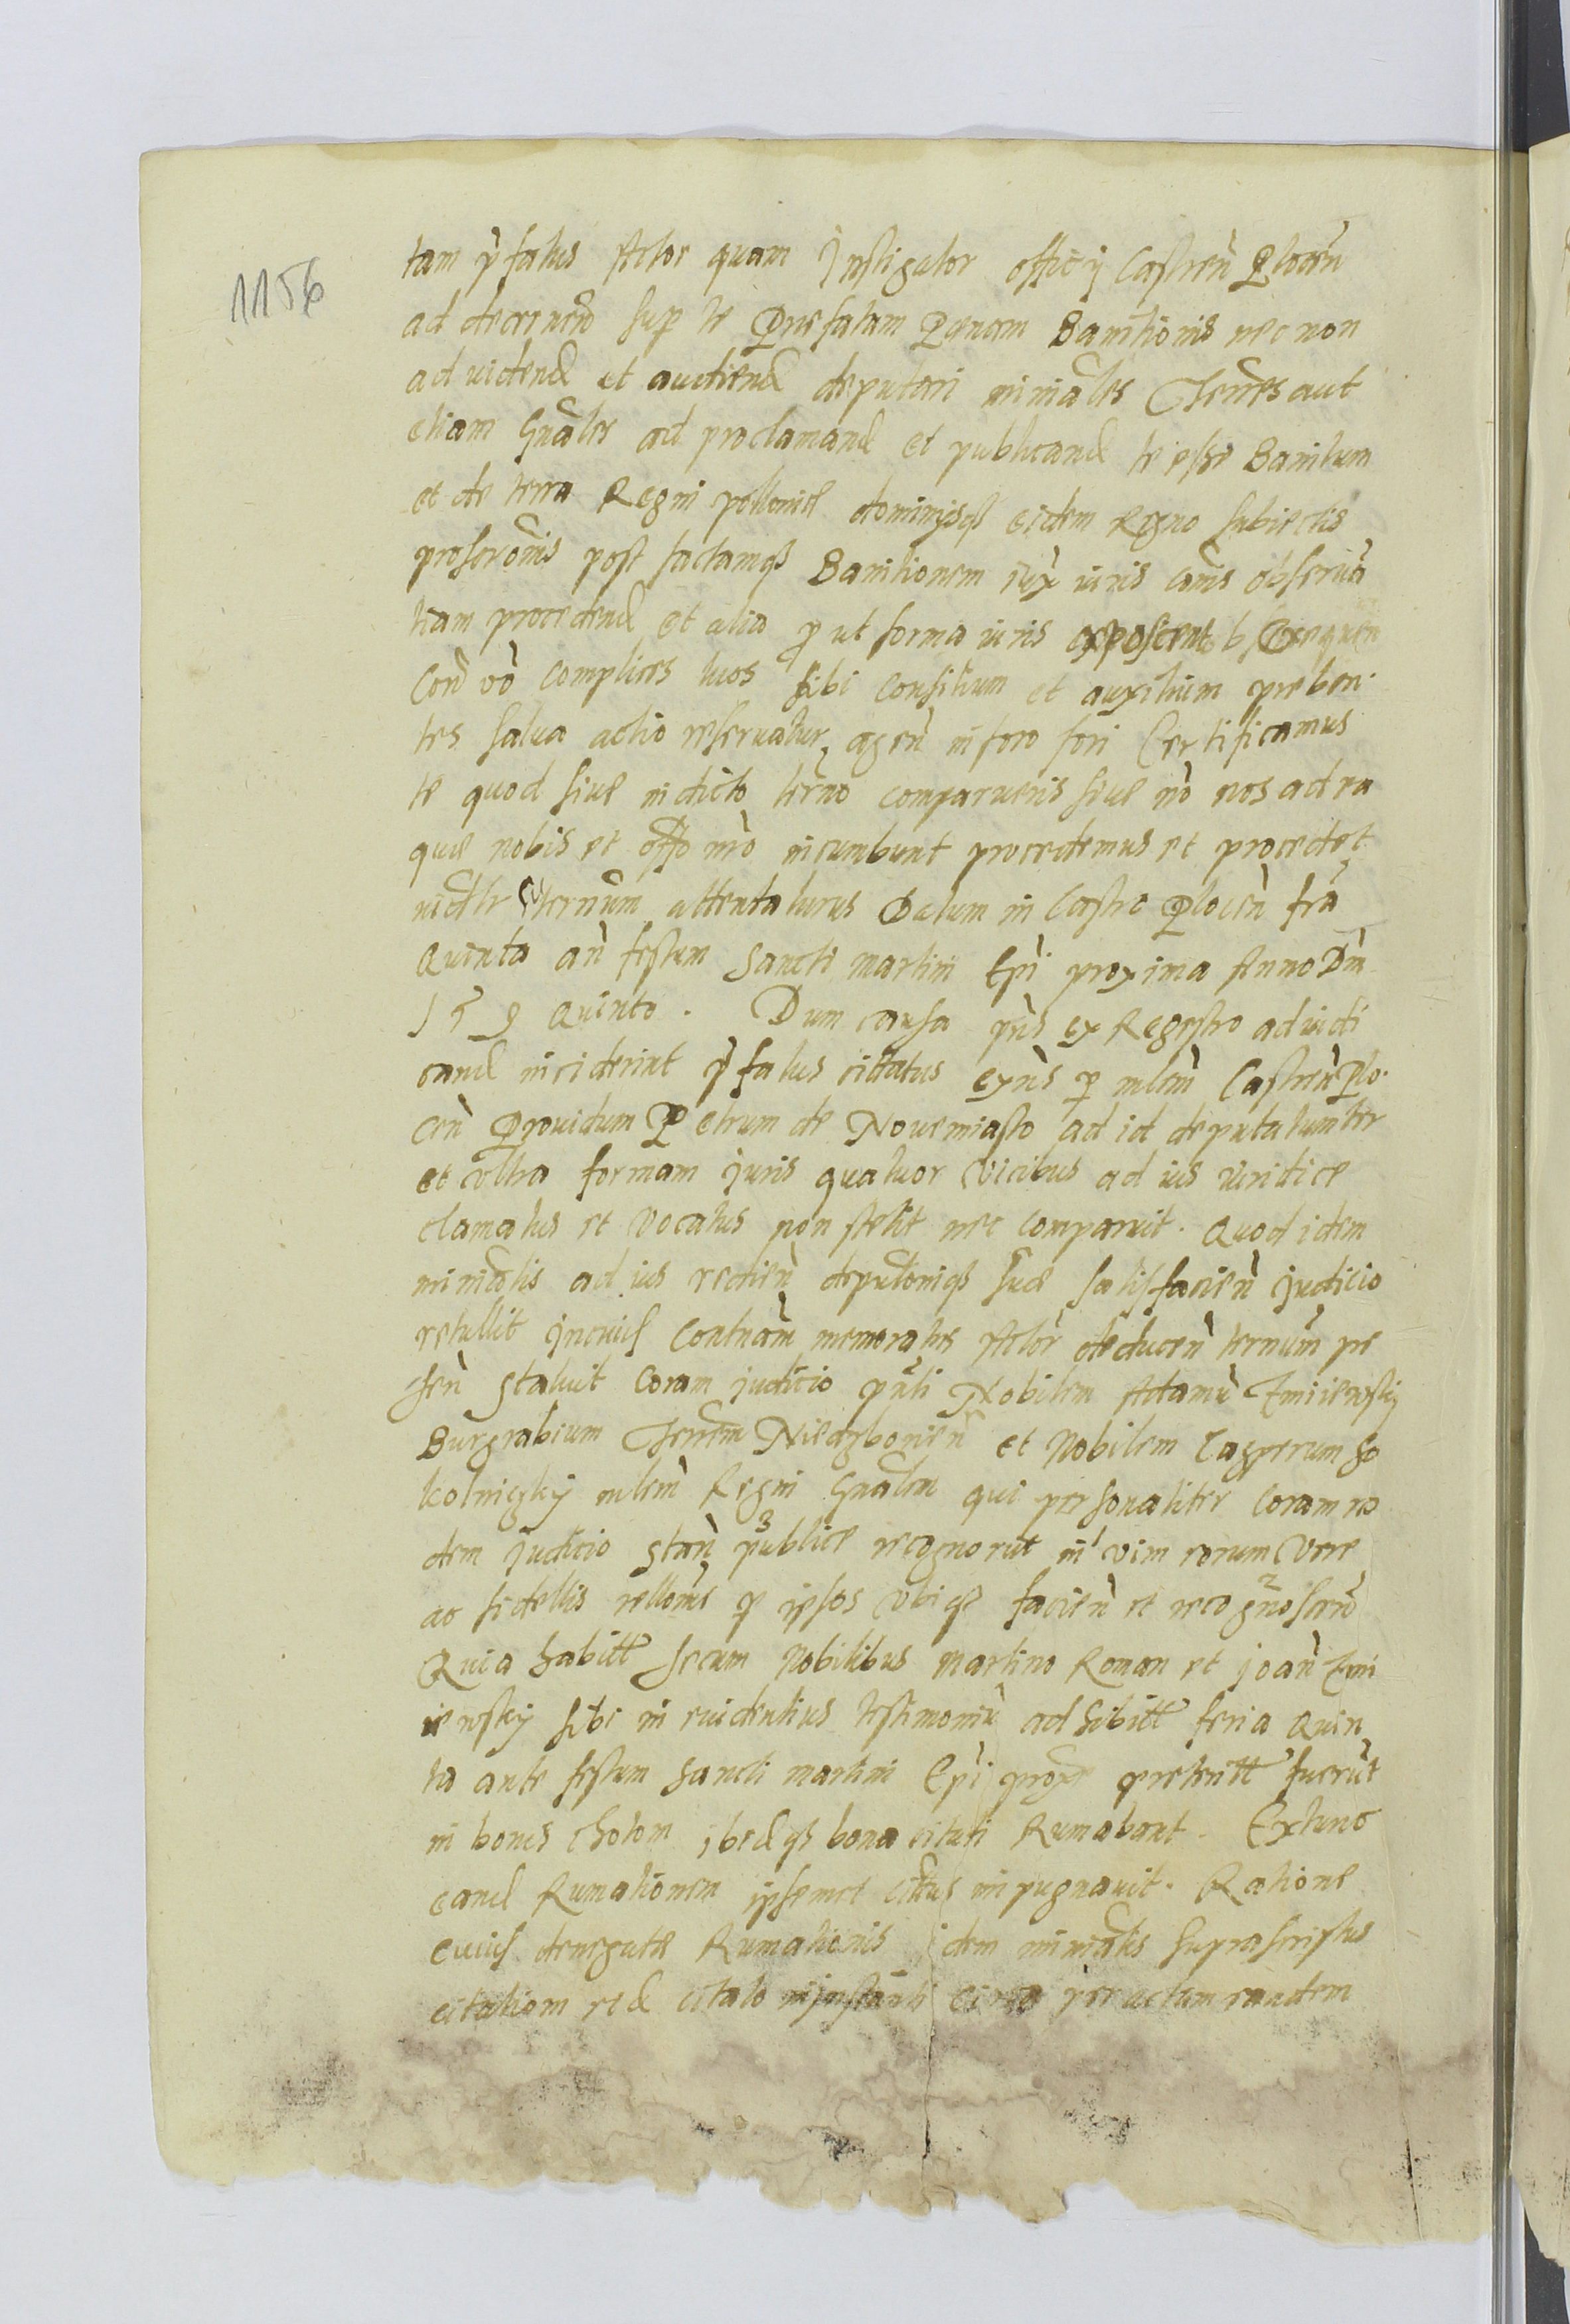 1156
tam p̀fatus Actor quam Instigator officij Castreǹ Ploceǹ
ad decerneǹ sup te Prefatam Pœnam Banitionis nec non
ad videnđ et audienđ deputari miniales Terres aut
etiam Gnales ad proclamanđ et publicanđ te esse Banitum
et de terra Regni poloniæ dominijsq3 eidem Regno subiectis
proscronis post factamq3 Banitionem iux iuris cois observà
tiam procedenđ et alia p ut forma iuris exposcent
Con vò complices tuos tibi consilium et auxilium preben
tes salva actio reservatur agen in foro fori Certificamus
te quod sive in dicto terno comparueris sive nò nos ad ea
quæ nobis et offo nrò incumbunt procedemus et procedet
ternum attentaturus Datum in Castro Ploceǹ fra
Quinta aǹ festum Sancti martini Epi proxima Anno Dni
159 Quinto . Dum causa pns ex Regestro ad iudi
canđ inciderint p̀fatus cittatus exns p mlem Castreǹ Plo
ceǹ Providum Petrum de Novemiasto ad id deputatum ter
et vltra formam juris quatuor vicibus ad ius iuridice
clamatus et vocatus non stetit nec comparuit . Quod idem
minialis ad ius redieǹ deputoniq3 suæ satisfacieǹ judicio
retullit jncuius Contuam memoratus Actor deduceǹ ternum pre
seǹ statuit Coram judicio pnti Nobilem Adamù Zmiiewskij
Burgrabium Terrem Niedzboniensem et Nobilem Casperum So
kolniczky mlem Regni Gnalem qui personaliter coram eo
dem judicio staǹ publice recognorut in vim eorum vere
ac fidellis relloms p ipsos vbiq3 facieǹ et recognosceǹ
Quia habitt secum Nobilibus Martino Roman et joaǹ Zmi
iewskij sibi in evidentius testimoniù adhibitt feria Quin
ta ante festum Sancti martini Epi prox preteritt fuerùt
in bonis ibeđq3 bona citati Rumabant . Extunc
eanđ Rumationem ipsemet cittus impugnavit . Ratione
cuius denegatæ Rumationis idem minialis suprascriptus
citatiom ređ citato eandem